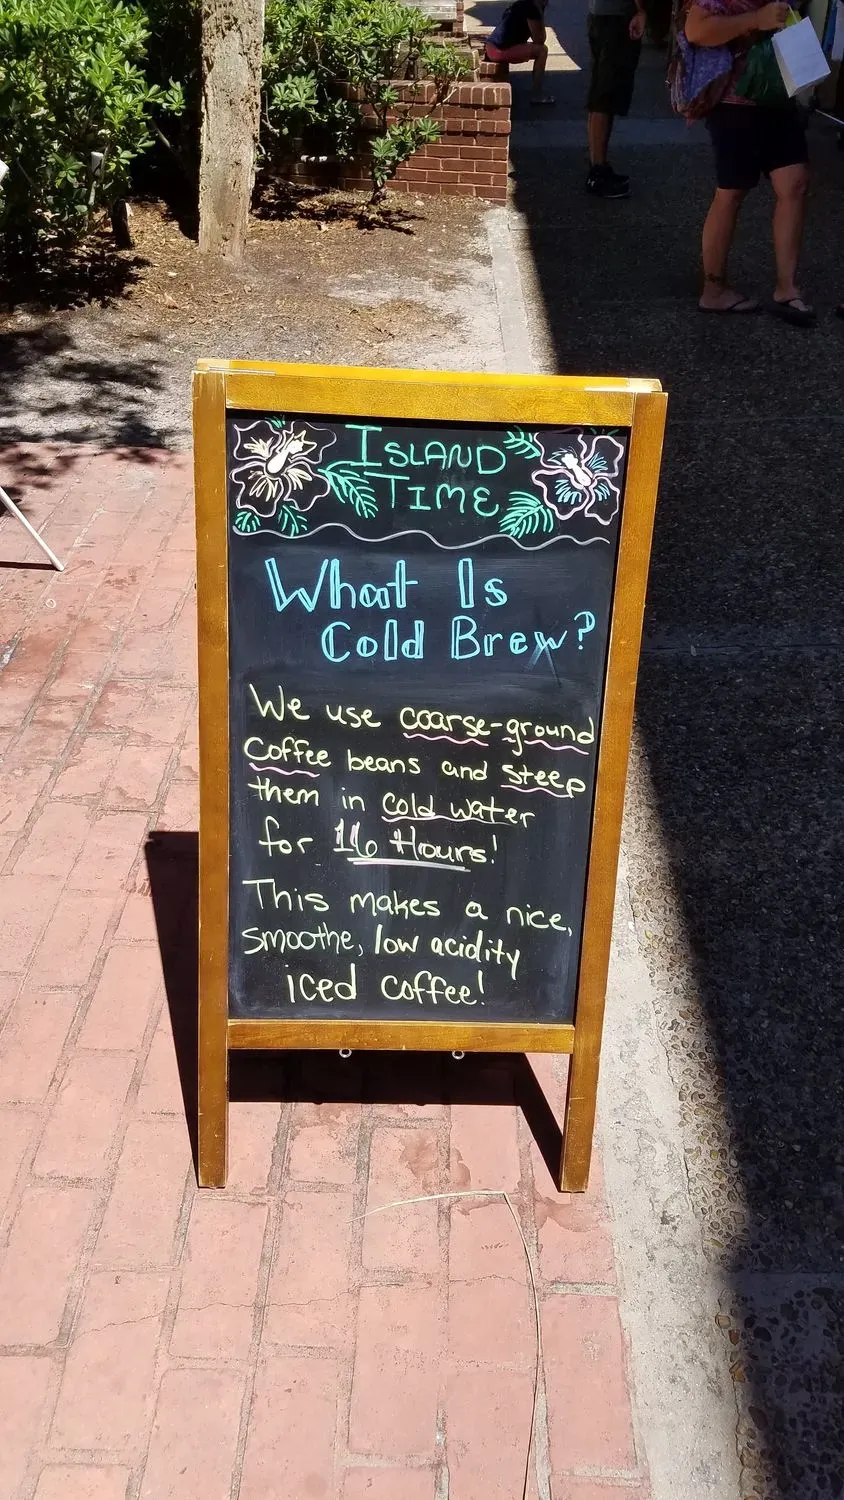 ISLAND
TIME
What Is
Cold Brew?
We use coarse-ground
Coffee beans and steep
them in cold water
for 16 Hours!
This makes a nice,
smoothe, low acidity
iced coffee!